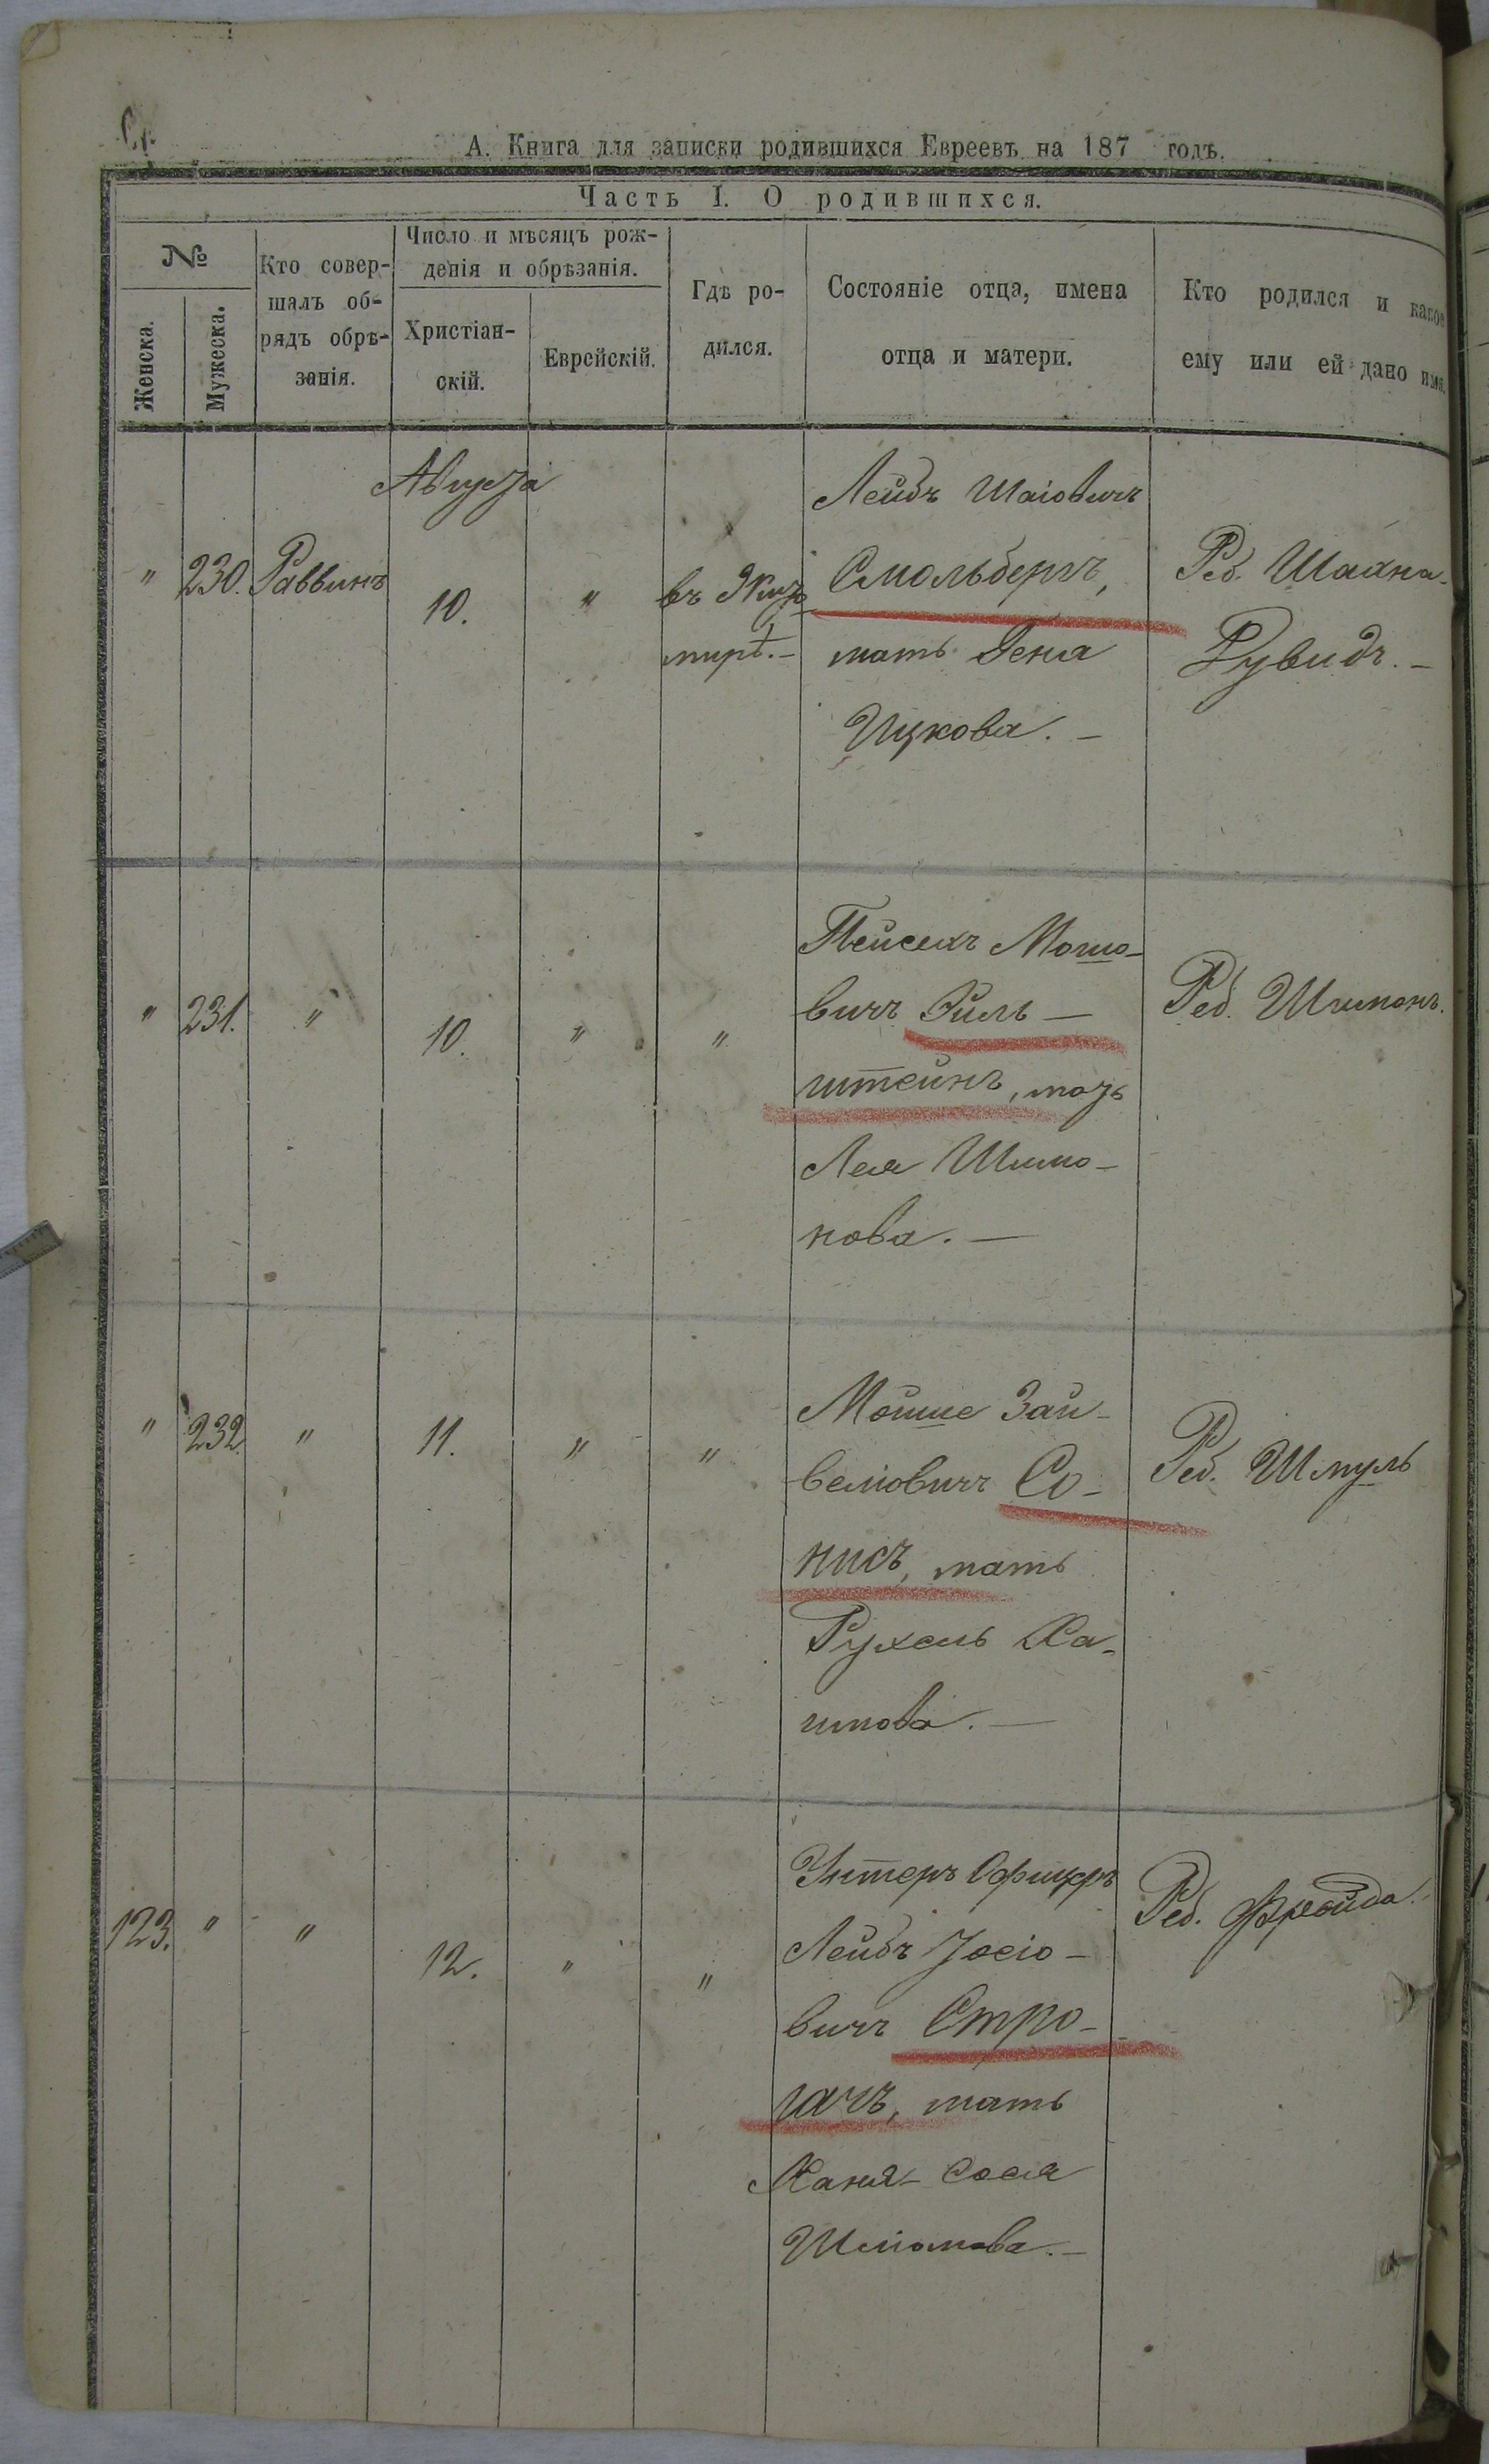 А. Книга для записки родившихся Евреевъ на 187 годъ.
Часть I. О родившихся.
№
Женска.
Мужеска.
Кто совер-
шалъ об-
рядъ обрѣ-
занія.
Число и мѣсяцъ рож-
денія и обрѣзанія.
Христіан-
скій.
Еврейскій.
Гдѣ ро-
дился.
Состояніе отца, имена
отца и матери.
Кто родился и какое
ему или ей дано имя.
Августа
" 230. Раввинъ 10. " въ Жито
мирѣ.-
Лейбъ Шаіовичъ
Смольбергъ,
мать Гена
Ицкова. -
Реб. Шахна-
Рувидъ. -
" 231. " 10. " "
Пейсахъ Мошо-
вичъ Зиль-
штейнъ, мать
Лея Шимо-
нова. -
Реб. Шимонъ.
" 232. " 11. " "
Мойше Зай-
веліовичъ Со-
нисъ, мать
Рухель Ха-
имова. -
Реб. Шмуль
123. " " 12. " "
Унтеръ Офицеръ
Лейбъ Іосіо-
вичъ Стро-
гачъ, мать
Ханя-Сося
Шліомова. -
Реб. Фрейда.